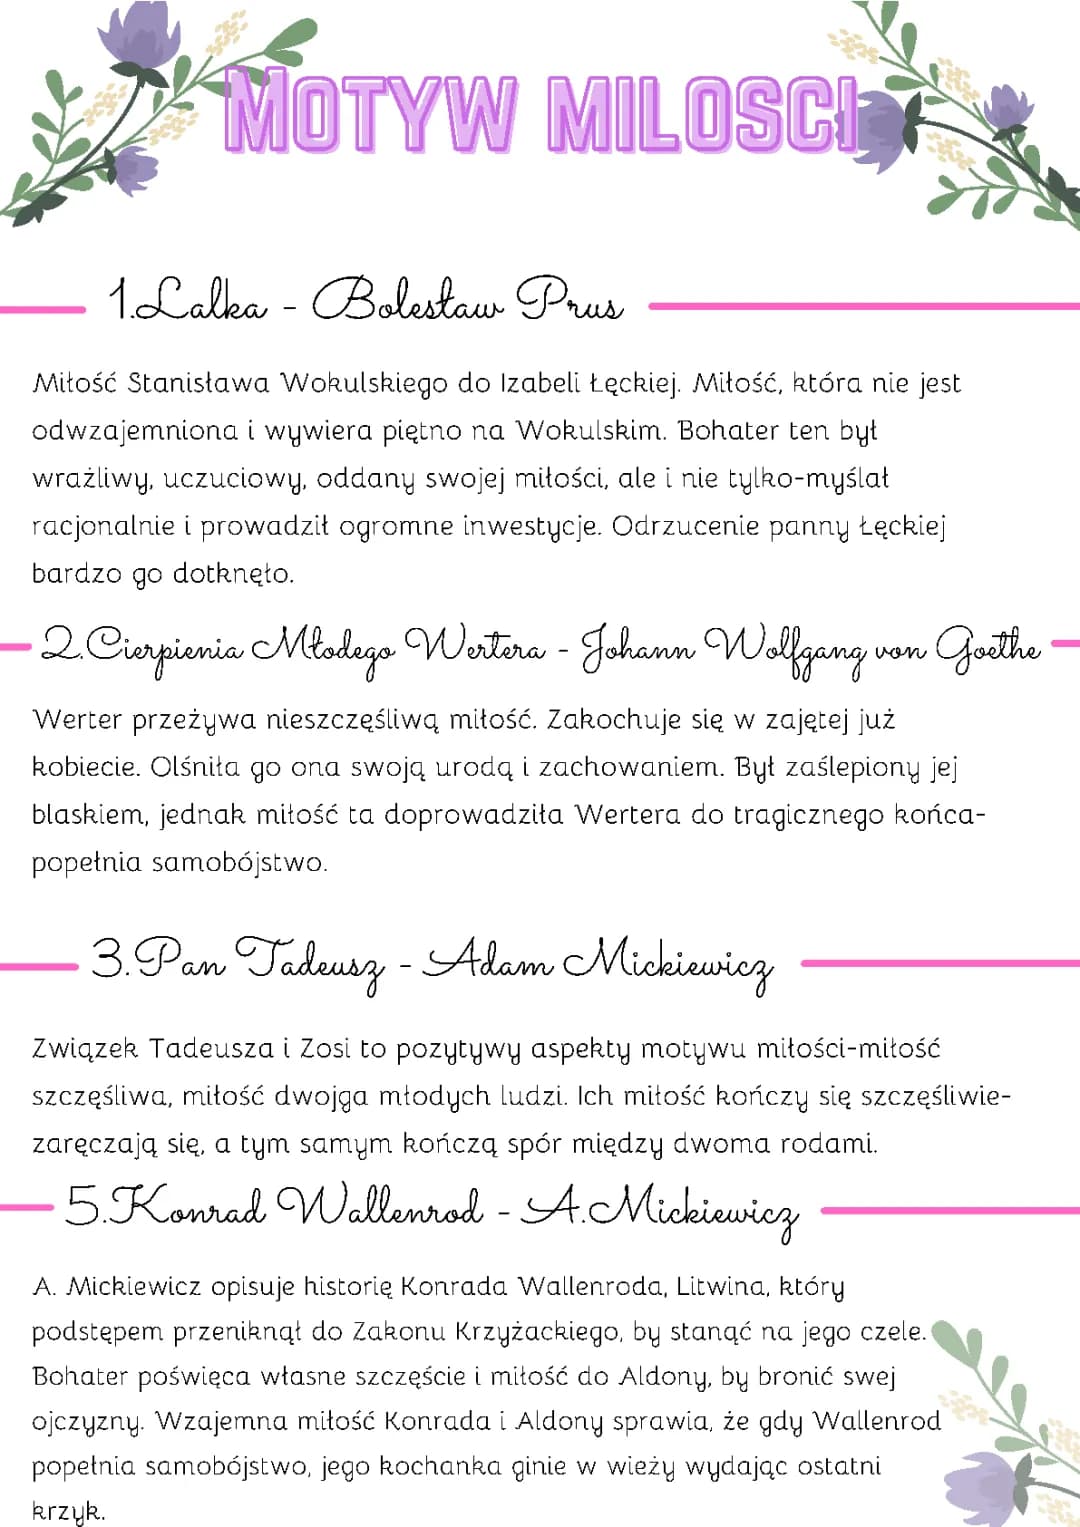 MOTYW MILOSCI
1.Lalka - Bolesław Prus
Miłość Stanisława Wokulskiego do Izabeli Łęckiej. Miłość, która nie jest
odwzajemniona i wywiera piętno na Wokulskim. Bohater ten był
wrażliwy, uczuciowy, oddany swojej miłości, ale i nie tylko-myślał
racjonalnie i prowadził ogromne inwestycje. Odrzucenie panny Łęckiej
bardzo go dotknęło.
2.Cierpienia Młodego Wertera - Johann Wolfgang von Goethe
Werter przeżywa nieszczęśliwą miłość. Zakochuje się w zajętej już
kobiecie. Olśniła go ona swoją urodą i zachowaniem. Był zaślepiony jej
blaskiem, jednak miłość ta doprowadziła Wertera do tragicznego końca-
popełnia samobójstwo.
3.Pan Tadeusz - Adam Mickiewicz
Związek Tadeusza i Zosi to pozytywy aspekty motywu miłości-miłość
szczęśliwa, miłość dwojga młodych ludzi. Ich miłość kończy się szczęśliwie-
zaręczają się, a tym samym kończą spór między dwoma rodami.
5.Konrad Wallenrod - A.Mickiewicz
A. Mickiewicz opisuje historię Konrada Wallenroda, Litwina, który
podstępem przeniknął do Zakonu Krzyżackiego, by stanąć na jego czele.
Bohater poświęca własne szczęście i miłość do Aldony, by bronić swej
ojczyzny. Wzajemna miłość Konrada i Aldony sprawia, że gdy Wallenrod
popełnia samobójstwo, jego kochanka ginie w wieży wydając ostatni
krzyk.